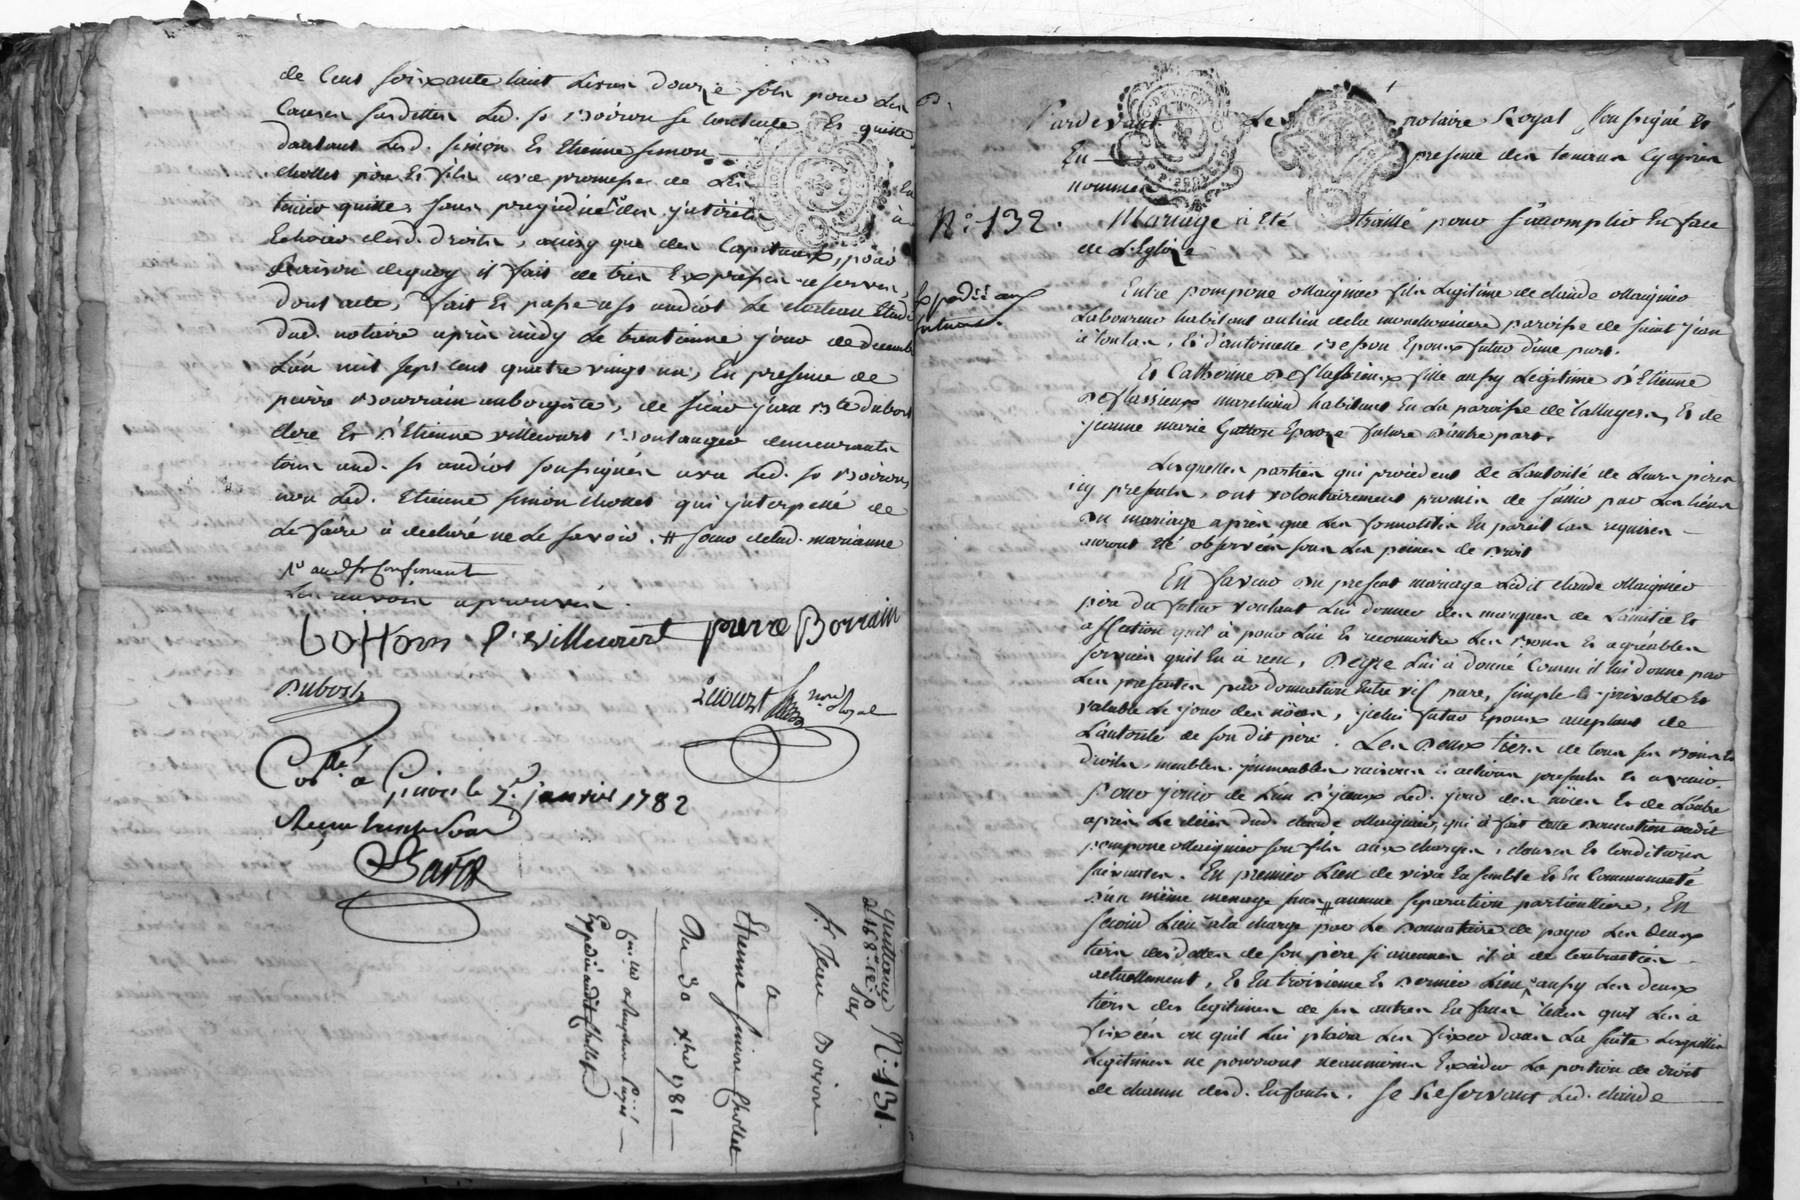 de Cent soixante huit Livres douze sols pour les
Causes susdittes led. sr Boiron se contente Et quitte
dautant lesd. simon Et Etienne simon
chollet pere Et fils avec promesse de Les
tenir quitte, sans prejudice des jnterets
Echoirs desd. droits, ainsy que des Capitaux, pour
Raison dequoy il fait de tres Expresses reserves
dont acte, fait Et passé
dud. notaire après midy le trentieme jour de decembre
L'an mil sept cent quatre vingt un, En presence de
pierre Bourrain aubergiste, de sieur jean Bte dubost
clerc Et d'Etienne villecourt Boulanger demeurants
tous aud. soussignés avec led. sr Boiron,
non led. Etienne simon chollet qui jnterpellé de
Le faire à declaré ne le savoir. # sœur delad. marianne
Les renvois approuvés.
Boiron E. villecourt pierre Borrain
Dubost
nore Royal
Collé à le 7e janvier 1782
N° 131.
Quittance
de 168ll 12s
Par
Sr Jean Boiron
a
Etienne Simon Chollet
Du 30 Xbre 1781
Expedié audit Chollet
Pardevant Le notaire Royal soussigné Et
En presence des temoins cy après
nommés
N° 132. Mariage à Eté traitté pour s'accomplir En face
de L'Eglise
Expedié aux
futurs.
Entre pompone Maignier fils Legitime de claude Maignier
Laboureur habitant au lieu dela paroisse de saint jean
à toulas, Et d'antoinette Besson Epoux futur d'une part.
Et Catherine Deflassieux fille aussy Legitime d'Etienne
Deflassieux marchand habitant En La paroisse de talluyers, Et de
jeanne marie Gutton Epouse future d'autre part.
Lesquelles parties qui procedent de L'autorité de Leurs peres
icy presents, ont volontairement promis de s'unir par Les liens
du mariage après que Les formalités En pareil cas requises
auront Eté observées sous Les peines de Droit
En faveur du present mariage Ledit claude Maignier
pere du futur voulant Lui donner des marques de L'amitié Et
affection quil à pour Lui Et reconnoitre Les Bons Et agréables
services quil En à reçu, De gré Lui à donné Comme il lui donne par
Les presentes par donnation Entre vif pure, simple Et jrrevocable Et
valable Le jour des nôces, jcelui futur Epoux acceptant de
L'autorité de son dit pere. Les Deux tiers de tous ses Biens Et
droits, meubles jmmeubles raisons Et actions presents Et avenir
Pour jouir de L'un d'jceux led. jour des nôces Et de L'autre
après Le décès dud. claude Maignier, qui à fait cette Donnation audit
pompone Maignier son fils aux charges, clauses Et Conditions
suivantes. En premier Lieu de vivre Ensemble Et En Communauté
d'un même menage sans # aucune separation particuliere, En
second Lieu à la charge par Le Donnataire de payer Les deux
tiers des dettes de son pere si aucunes il à de contractées
actuellement, Et En troisieme Et Dernier Lieu aussy Les deux
tiers des legitimes de ses autres Enfans telles quil Les à
fixées ou quil Lui plaira Les fixer dans La suite Lesquelles
Legitimes ne pourront neanmoins Exceder La portion de droit
de chacun desd. Enfants. Se Reservant Led. claude